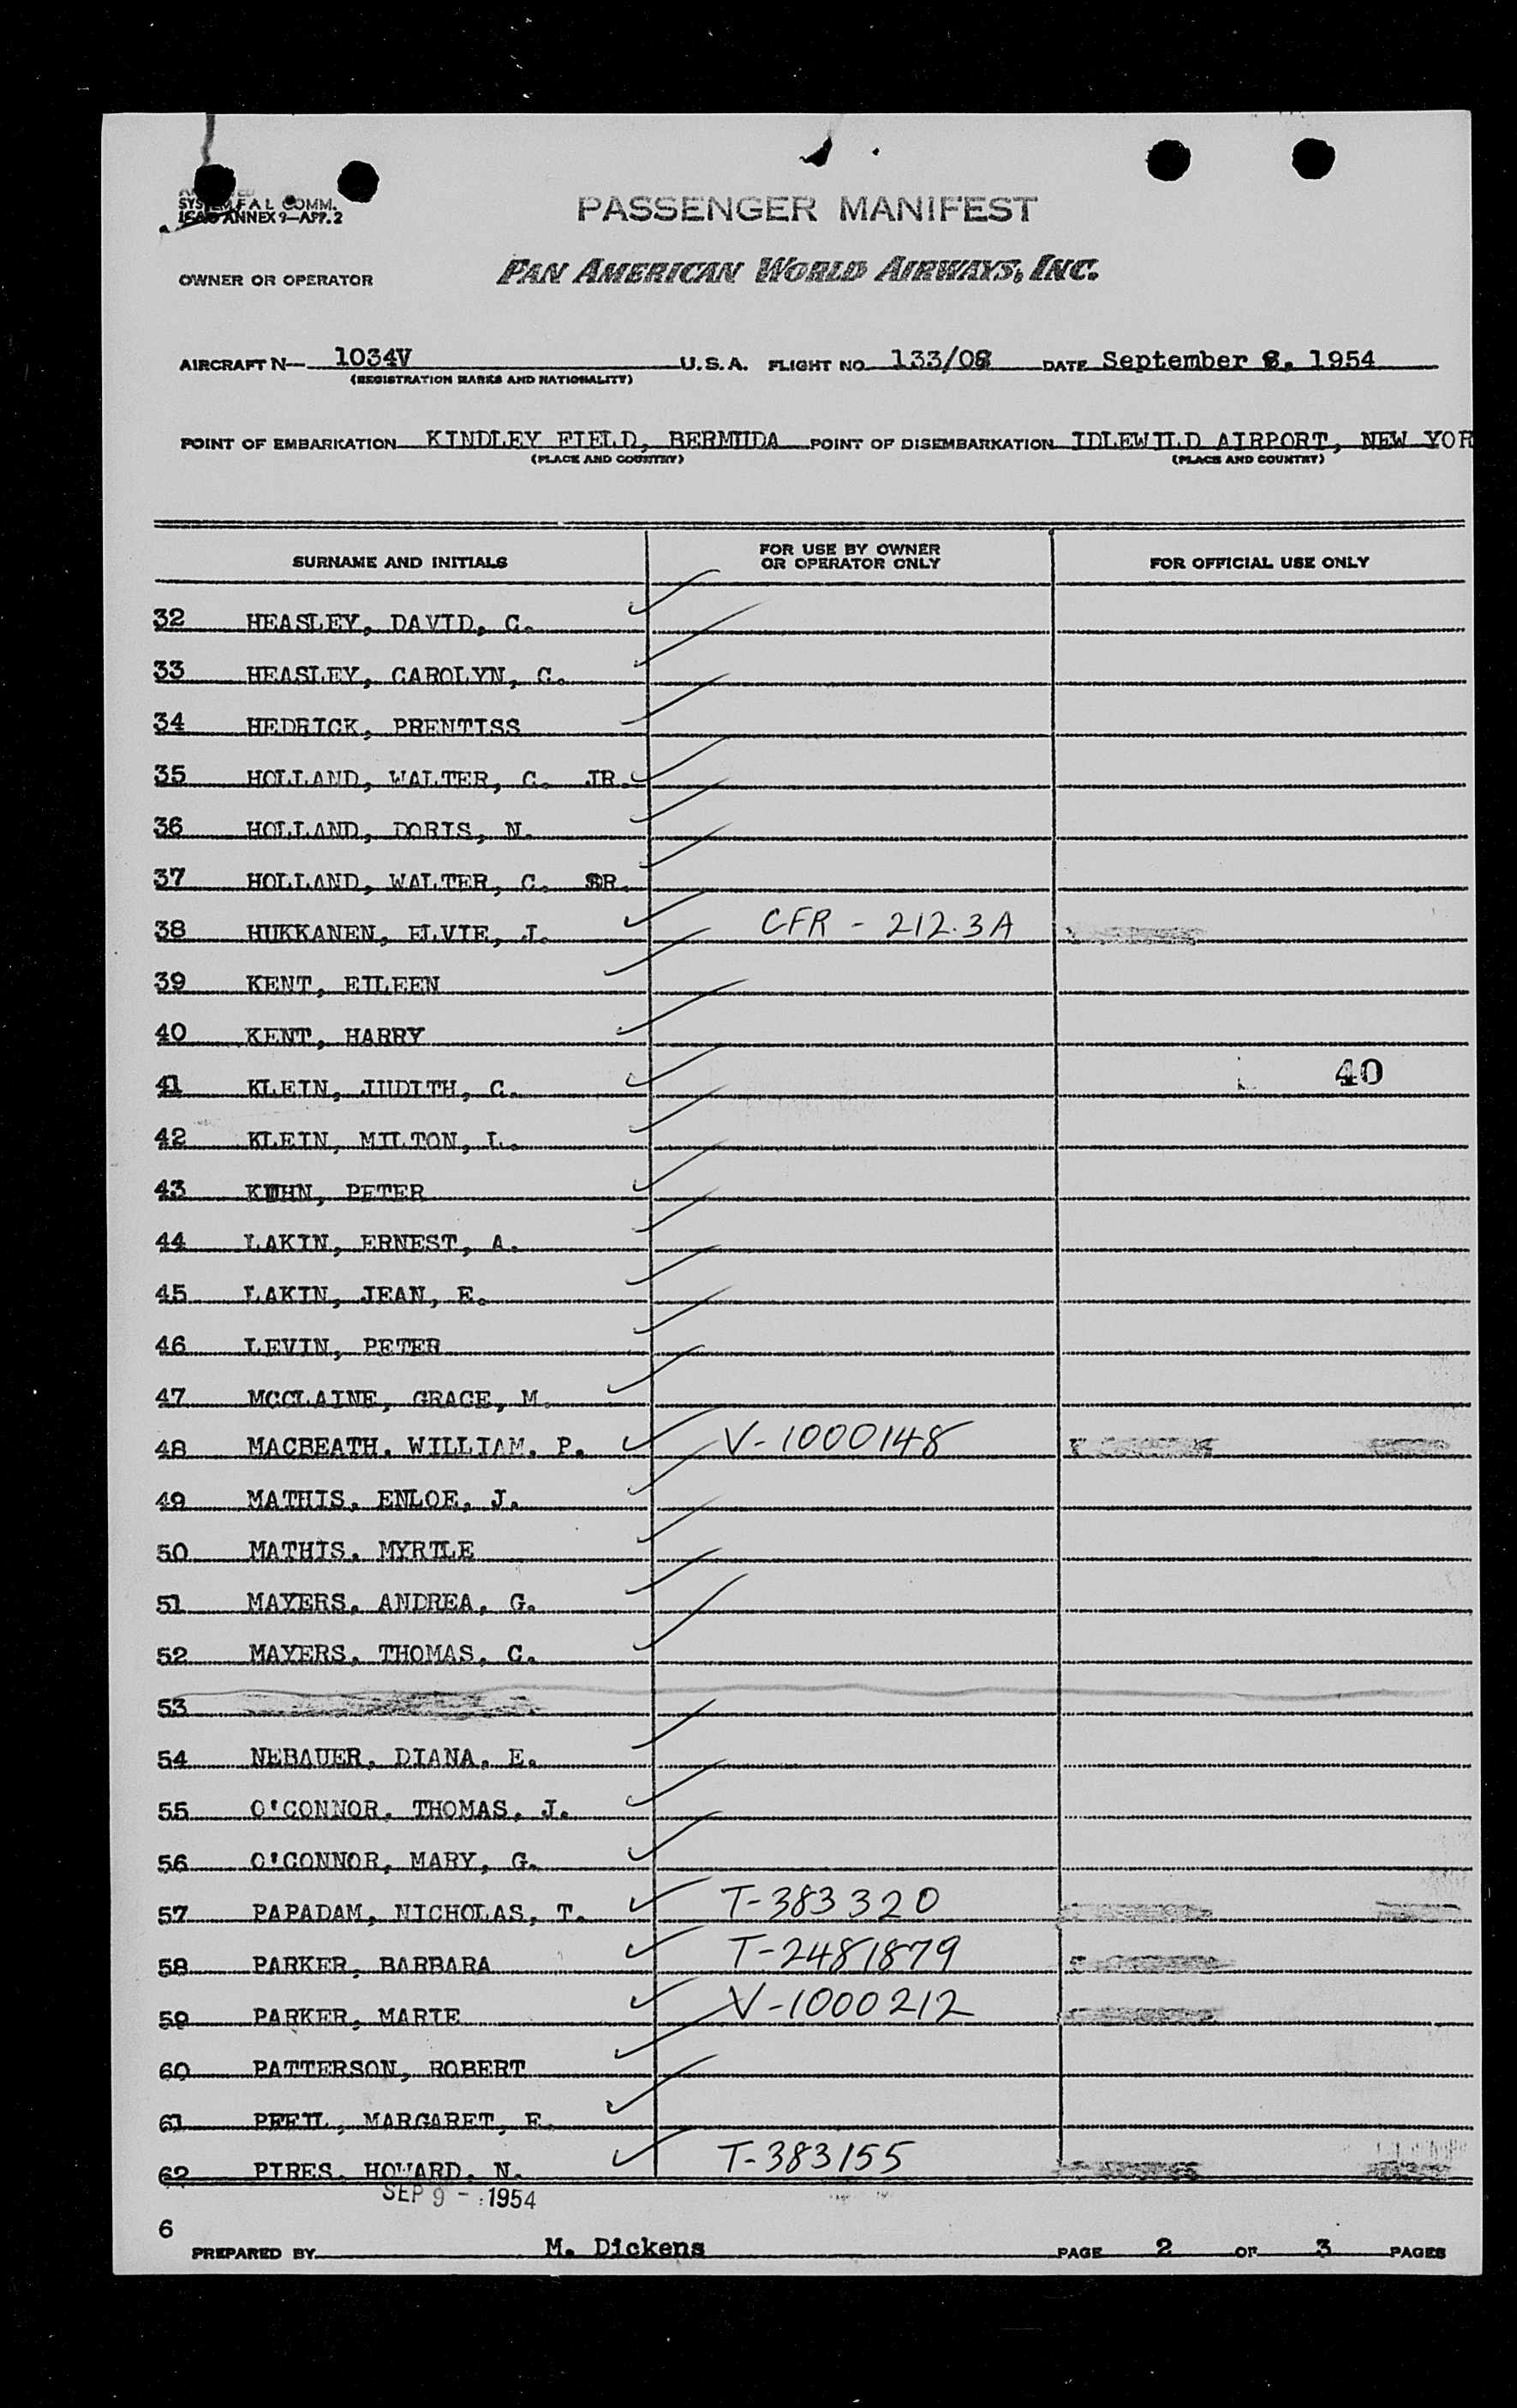 SYSTEM F A L COMM.
ICAO ANNEX 9—APP. 2
PASSENGER MANIFEST
OWNER OR OPERATOR PAN AMERICAN WORLD AIRWAYS, INC.
AIRCRAFT N— 1034V U.S.A. FLIGHT NO. 133/08 DATE September 8, 1954
(REGISTRATION MARKS AND NATIONALITY)
POINT OF EMBARKATION KINDLEY FIELD, BERMUDA POINT OF DISEMBARKATION IDLEWILD AIRPORT, NEW YOR
(PLACE AND COUNTRY) (PLACE AND COUNTRY)
SURNAME AND INITIALS FOR USE BY OWNER OR OPERATOR ONLY FOR OFFICIAL USE ONLY
32 HEASLEY, DAVID, C.
33 HEASLEY, CAROLYN, C.
34 HEDRICK, PRENTISS
35 HOLLAND, WALTER, C. JR.
36 HOLLAND, DORIS, N.
37 HOLLAND, WALTER, C. SR.
38 HUKKANEN, ELVIE, J. CFR - 212.3A
39 KENT, EILEEN
40 KENT, HARRY
41 KLEIN, JUDITH, C. 40
42 KLEIN, MILTON, L.
43 KUHN, PETER
44 LAKIN, ERNEST, A.
45 LAKIN, JEAN, E.
46 LEVIN, PETER
47 MCCLAINE, GRACE, M.
48 MACBEATH, WILLIAM, P. V-1000148
49 MATHIS, ENLOE, J.
50 MATHIS, MYRTLE
51 MAYERS, ANDREA, G.
52 MAYERS, THOMAS, C.
53
54 NEBAUER, DIANA, E.
55 O'CONNOR, THOMAS, J.
56 O'CONNOR, MARY, G.
57 PAPADAM, NICHOLAS, T. T-383320
58 PARKER, BARBARA T-2481879
59 PARKER, MARIE V-1000212
60 PATTERSON, ROBERT
61 PFEIL, MARGARET, E.
62 PIRES, HOWARD, N. T-383155
SEP 9 - 1954
6
PREPARED BY M. Dickens PAGE 2 OF 3 PAGES